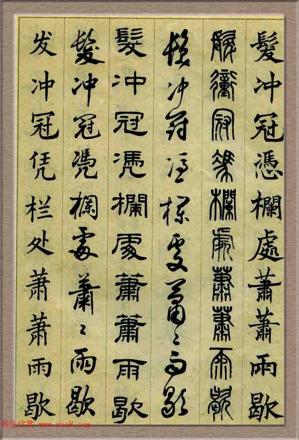 髮冲冠憑欄處蕭蕭雨歇
髮衝冠憑欄處蕭蕭雨歇
髮冲冠憑欄處蕭〻雨歇
髮冲冠凴欄處蕭蕭雨歇
髮冲冠凴欄處蕭〻雨歇
发冲冠凭栏处萧萧雨歇